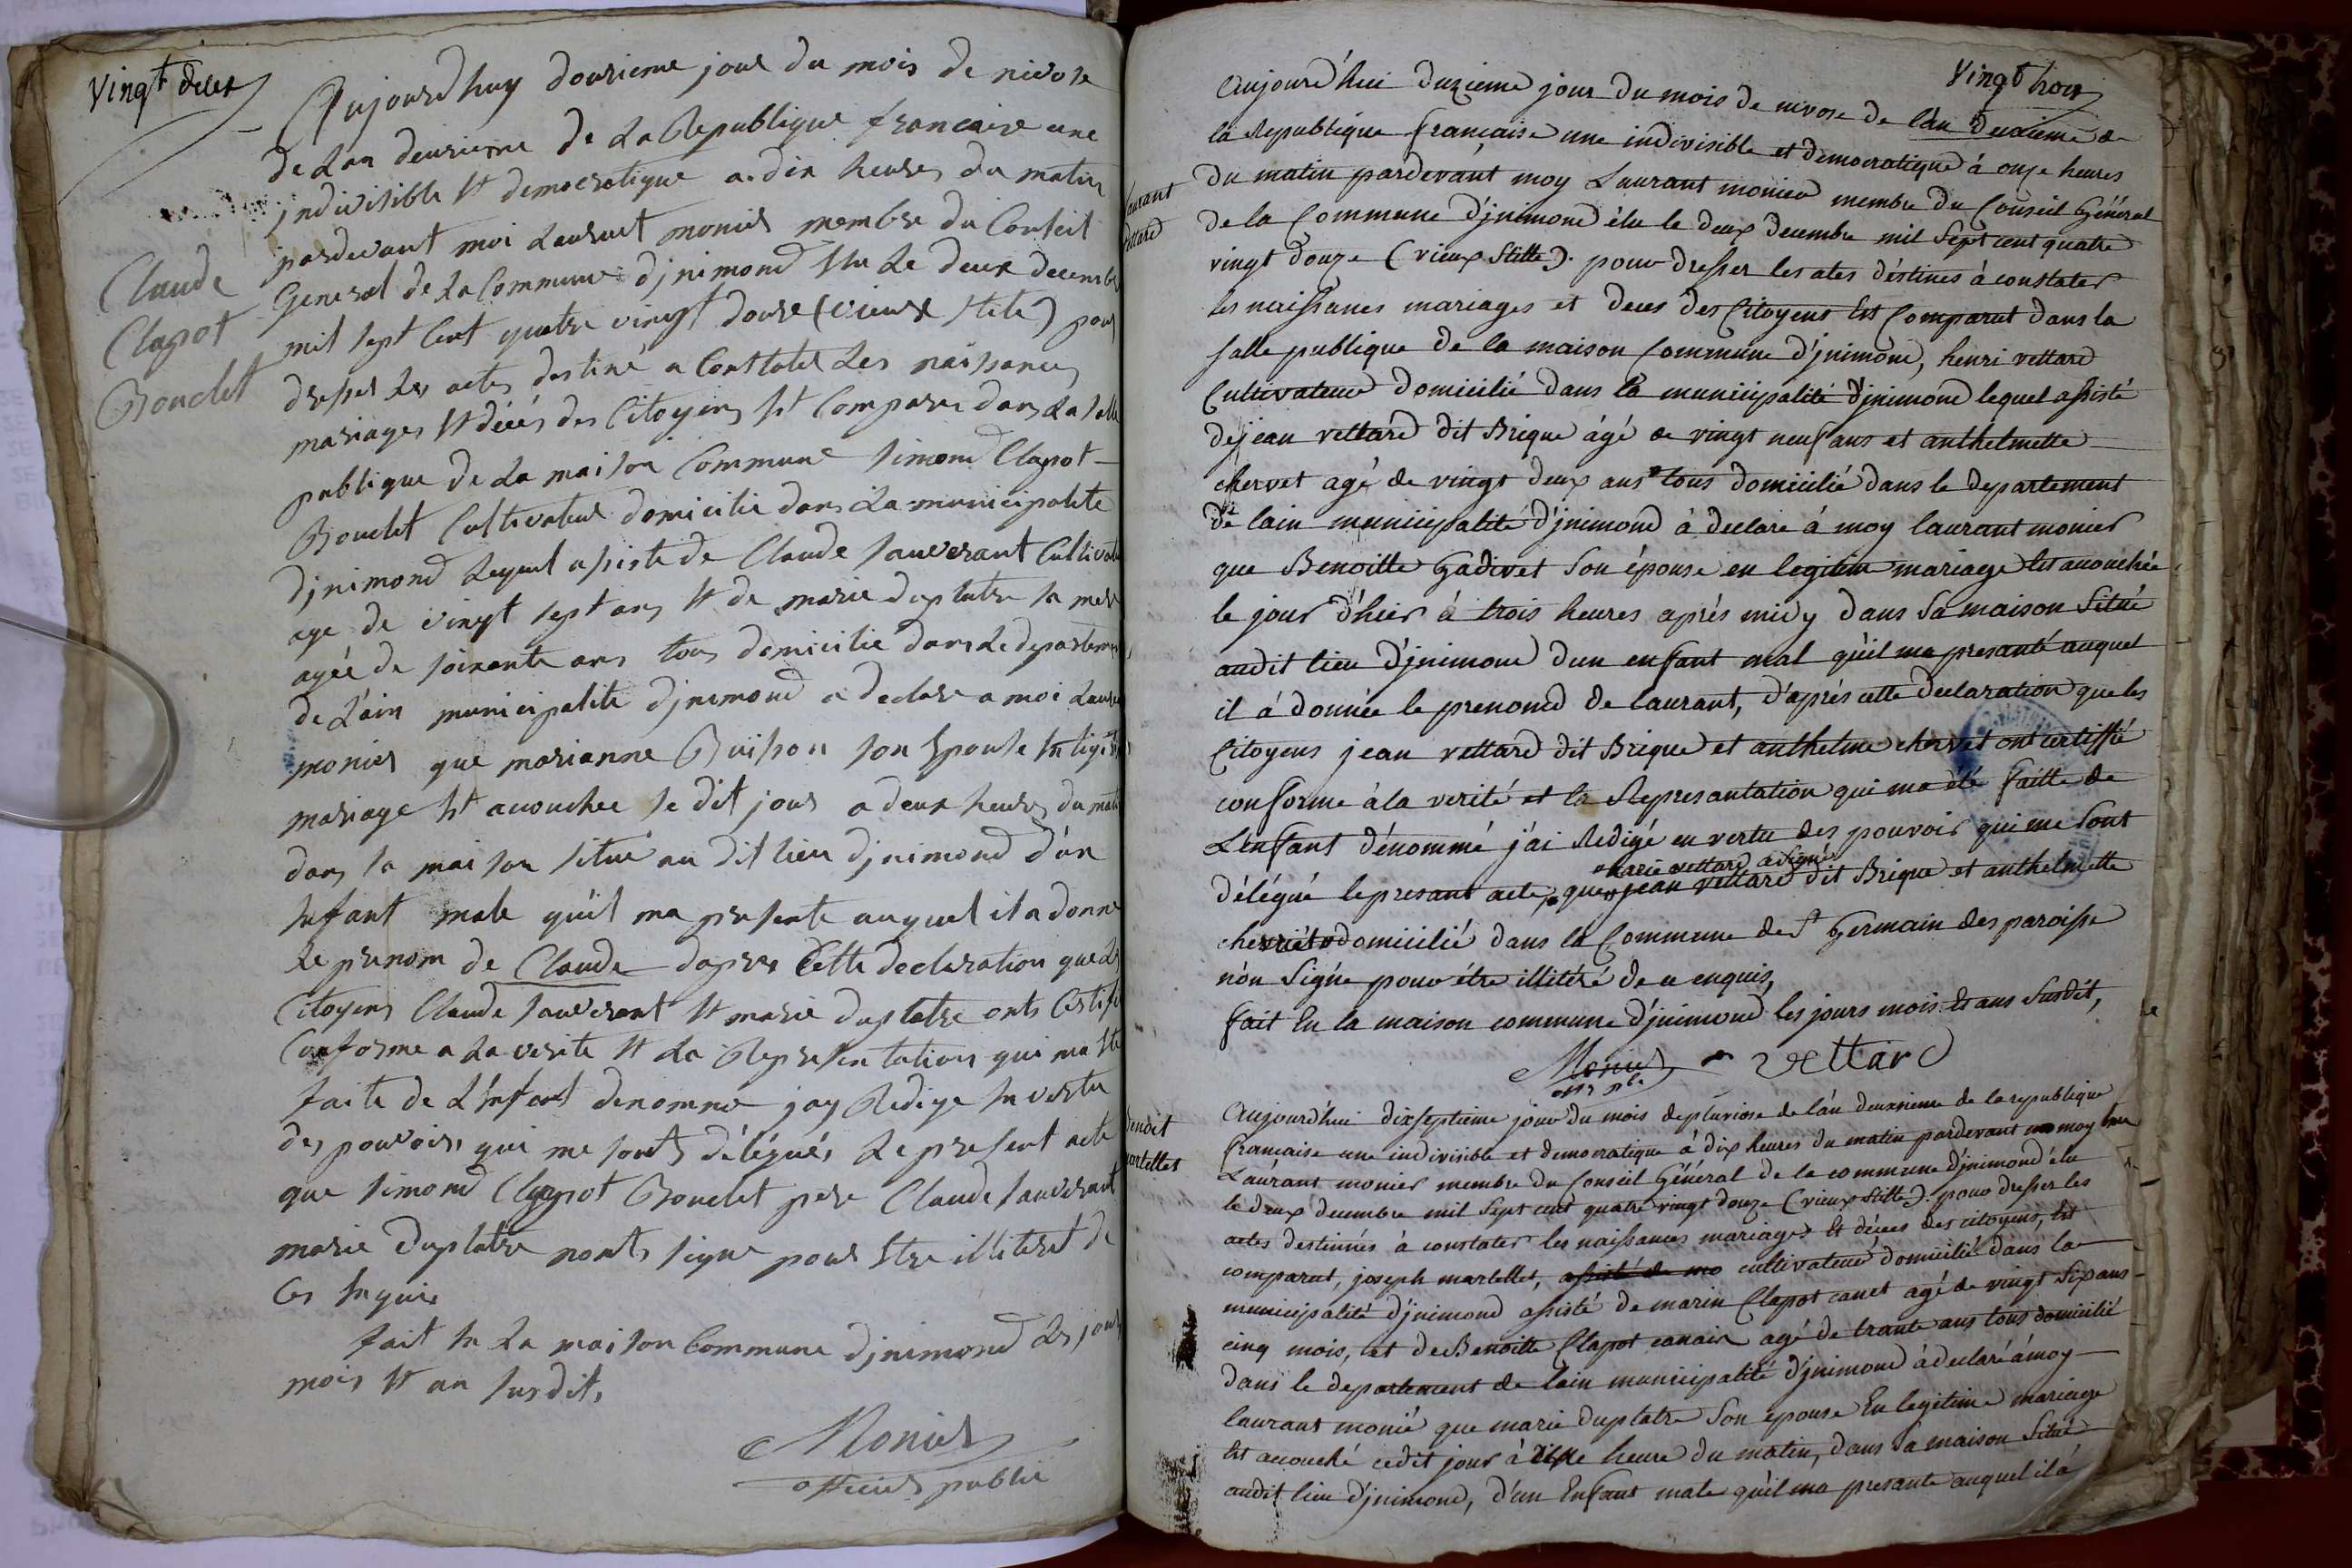 Vingt deux
Aujourdhuy douzieme jour du mois de nivose
de Lan deuxieme de La Republique francaise une
jndivisible Et democratique a dix heures du matin
pardevant moi Laurent monier membre du Conseil
General de La Commune djnimond Elu Le deux decembre
mil sept Cent quatre vingt douze (vieux stile) pour
dresser Les actes destiné a Constater Les naissances
mariages Et décés des Citoyens Est Comparu dans La salle
publique de La maison Commune simond Clapot
Bouclet Cultivateur domicilie dans La municipalite
djnimond Lequel assiste de Claude sauverant Cultivate
age de vingt sept ans Et de marie duplatre sa mere
agée de soixante ans tous domicilié dans Le departem
de L'ain municipalite djnimond a declare a moi Laure
monier que marianne Buisson son Epouse En legi
mariage Est acouchee Le dit jour a deux heures du mat
dans sa maison situé au dit lieu djnimond d'un
Enfant male qu'il ma presente auquel il a donne
Le prenom de Claude dapres Cette declaration que Les
Citoyens Claude sauverant Et marie duplatre onts Certifi
Conforme a La verite Et La Representation qui ma Ete
faite de L'Enfant denomme jay Redige En vertu
des pouvoirs qui me sonts délégués Le present acte
que simond Clapot Bouclet pere Claude sauverant
marie duplatre nonts signe pour Etre illiteret de
Ces Enquis
fait En La maison Commune djnimond Les jour
mois Et an susdits,
Monier
officier public
Claude
Clapot
Bouclet
Vingt trois
Aujourd'hui duzieme jour du mois de nivose de l'an deuxieme de
la Republique française une indivisible et democratique à onze heures
du matin pardevant moy Laurant monier membre du Conseil Général
de la Commune d'jnimond élu le deux decembre mil sept cent quatre
vingt douze (vieux stille). pour dresser les ates déstinés à constater
les naissances mariages et deces des Citoyens Est Comparut dans la
salle publique de la maison Commune d'jnimond, henri vettard
Cultivateur domicilié dans la municipalité d'jnimond lequel assisté
de jean vettard dit Brique âgé de vingt neuf ans et anthelmette
chervet agé de vingt deux ans tous domicilié dans le departement
de lain municipalité d'jnimond à declaré à moy laurant monier
que Benoitte Gadivet son épouse en legitim mariage Est acouchée
le jour d'hier à trois heures aprés midy dans sa maison situé
audit lieu d'jnimond d'un enfant mal qu'il ma presanté auquel
il á donnée le prenomd de laurant, d'aprés cette declaration que les
Citoyens jean vettard dit Brique et anthelme chervet ont certiffié
conforme à la verité et la Represantation qui ma été faitte de
L'enfant dénommé j'ai Redigé en vertu des pouvoir qui me sont
#arie vettard a signé
délégué le presant acte, que jean vettard dit Brique et anthelmette
domicilié dans la Commune de St Germain des paroisse
nòn signé pour être illitéré de ce enquis,
fait En la maison commune d'jnimond les jours mois Et ans susdit,
Monier vettard
off pb.
aurant
ettard
Aujourd'hui dixseptieme jour du mois de pluviose de l'an deuxieme de la republique
francaise une indivisible et democratique à dix heures du matin pardevant moy
Laurant monier membre du Conseil Général de la commune d'jnimond élu
le deux decembre mil sept cent quatre vingt douze (vieux stille). pour dresser les
actes destinnés à constater les naissances mariages Et décees des citoyens, Est
comparut, joseph martellet, assisté de mo cultivateur domicilié dans la
municipalité d'jnimond assisté de marin Clapot canet agé de vingt six ans
cinq mois, et de Benoitte Clapot canair agé de trante ans tous domicilié
dans le departement de lain municipalité d'jnimond à declaré à moy
laurant monié que marie duplatre son epouse En legitime mariage
Est acouché cedit jour à heure du matin, dans sa maison situé
audit lieu d'jnimond, d'un Enfant male qu'il ma presante auquel il à
endit
artellet